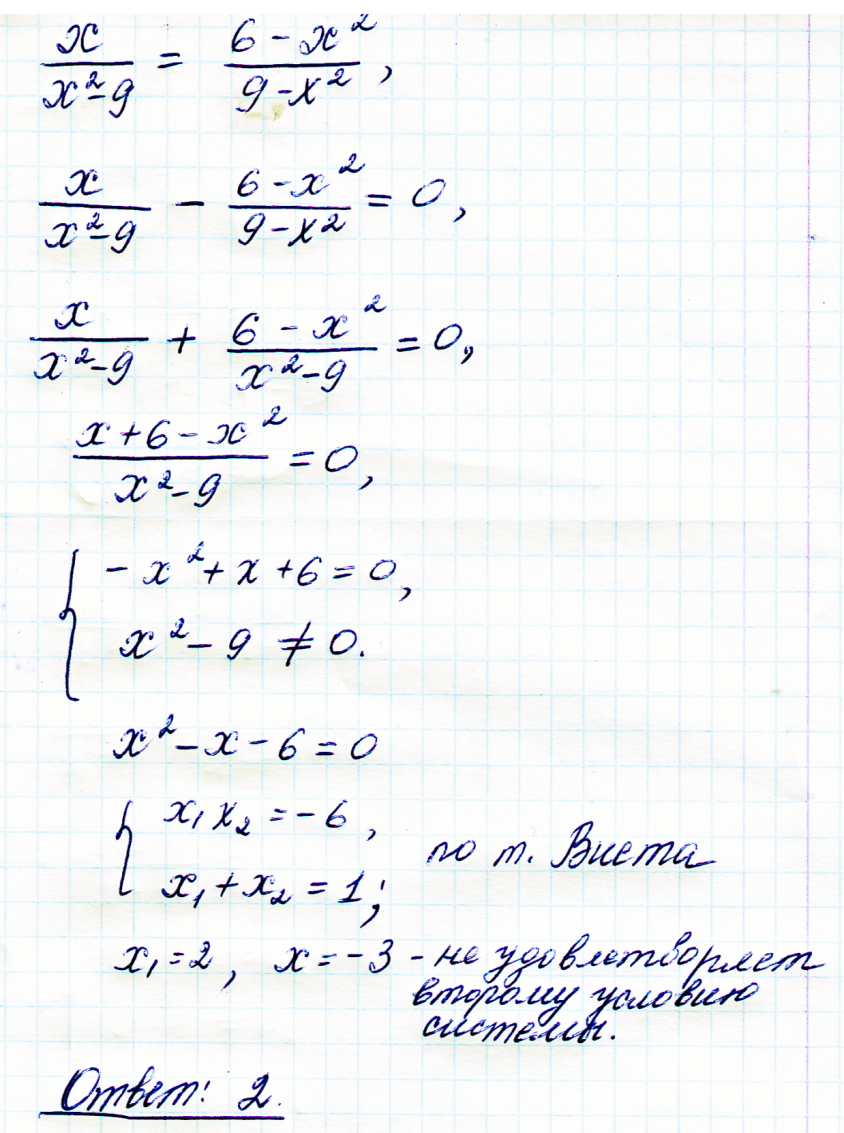 x/(x²-9) = (6-x²)/(9-x²),
x/(x²-9) - (6-x²)/(9-x²) = 0,
x/(x²-9) + (6-x²)/(x²-9) = 0,
(x+6-x²)/(x²-9) = 0,
{ -x²+x+6=0,
x²-9 ≠ 0.
x²-x-6=0
{ x₁x₂=-6,
x₁+x₂=1; по т. Виета
x₁=2, x=-3 - не удовлетворяет
второму условию
системы.
Ответ: 2.